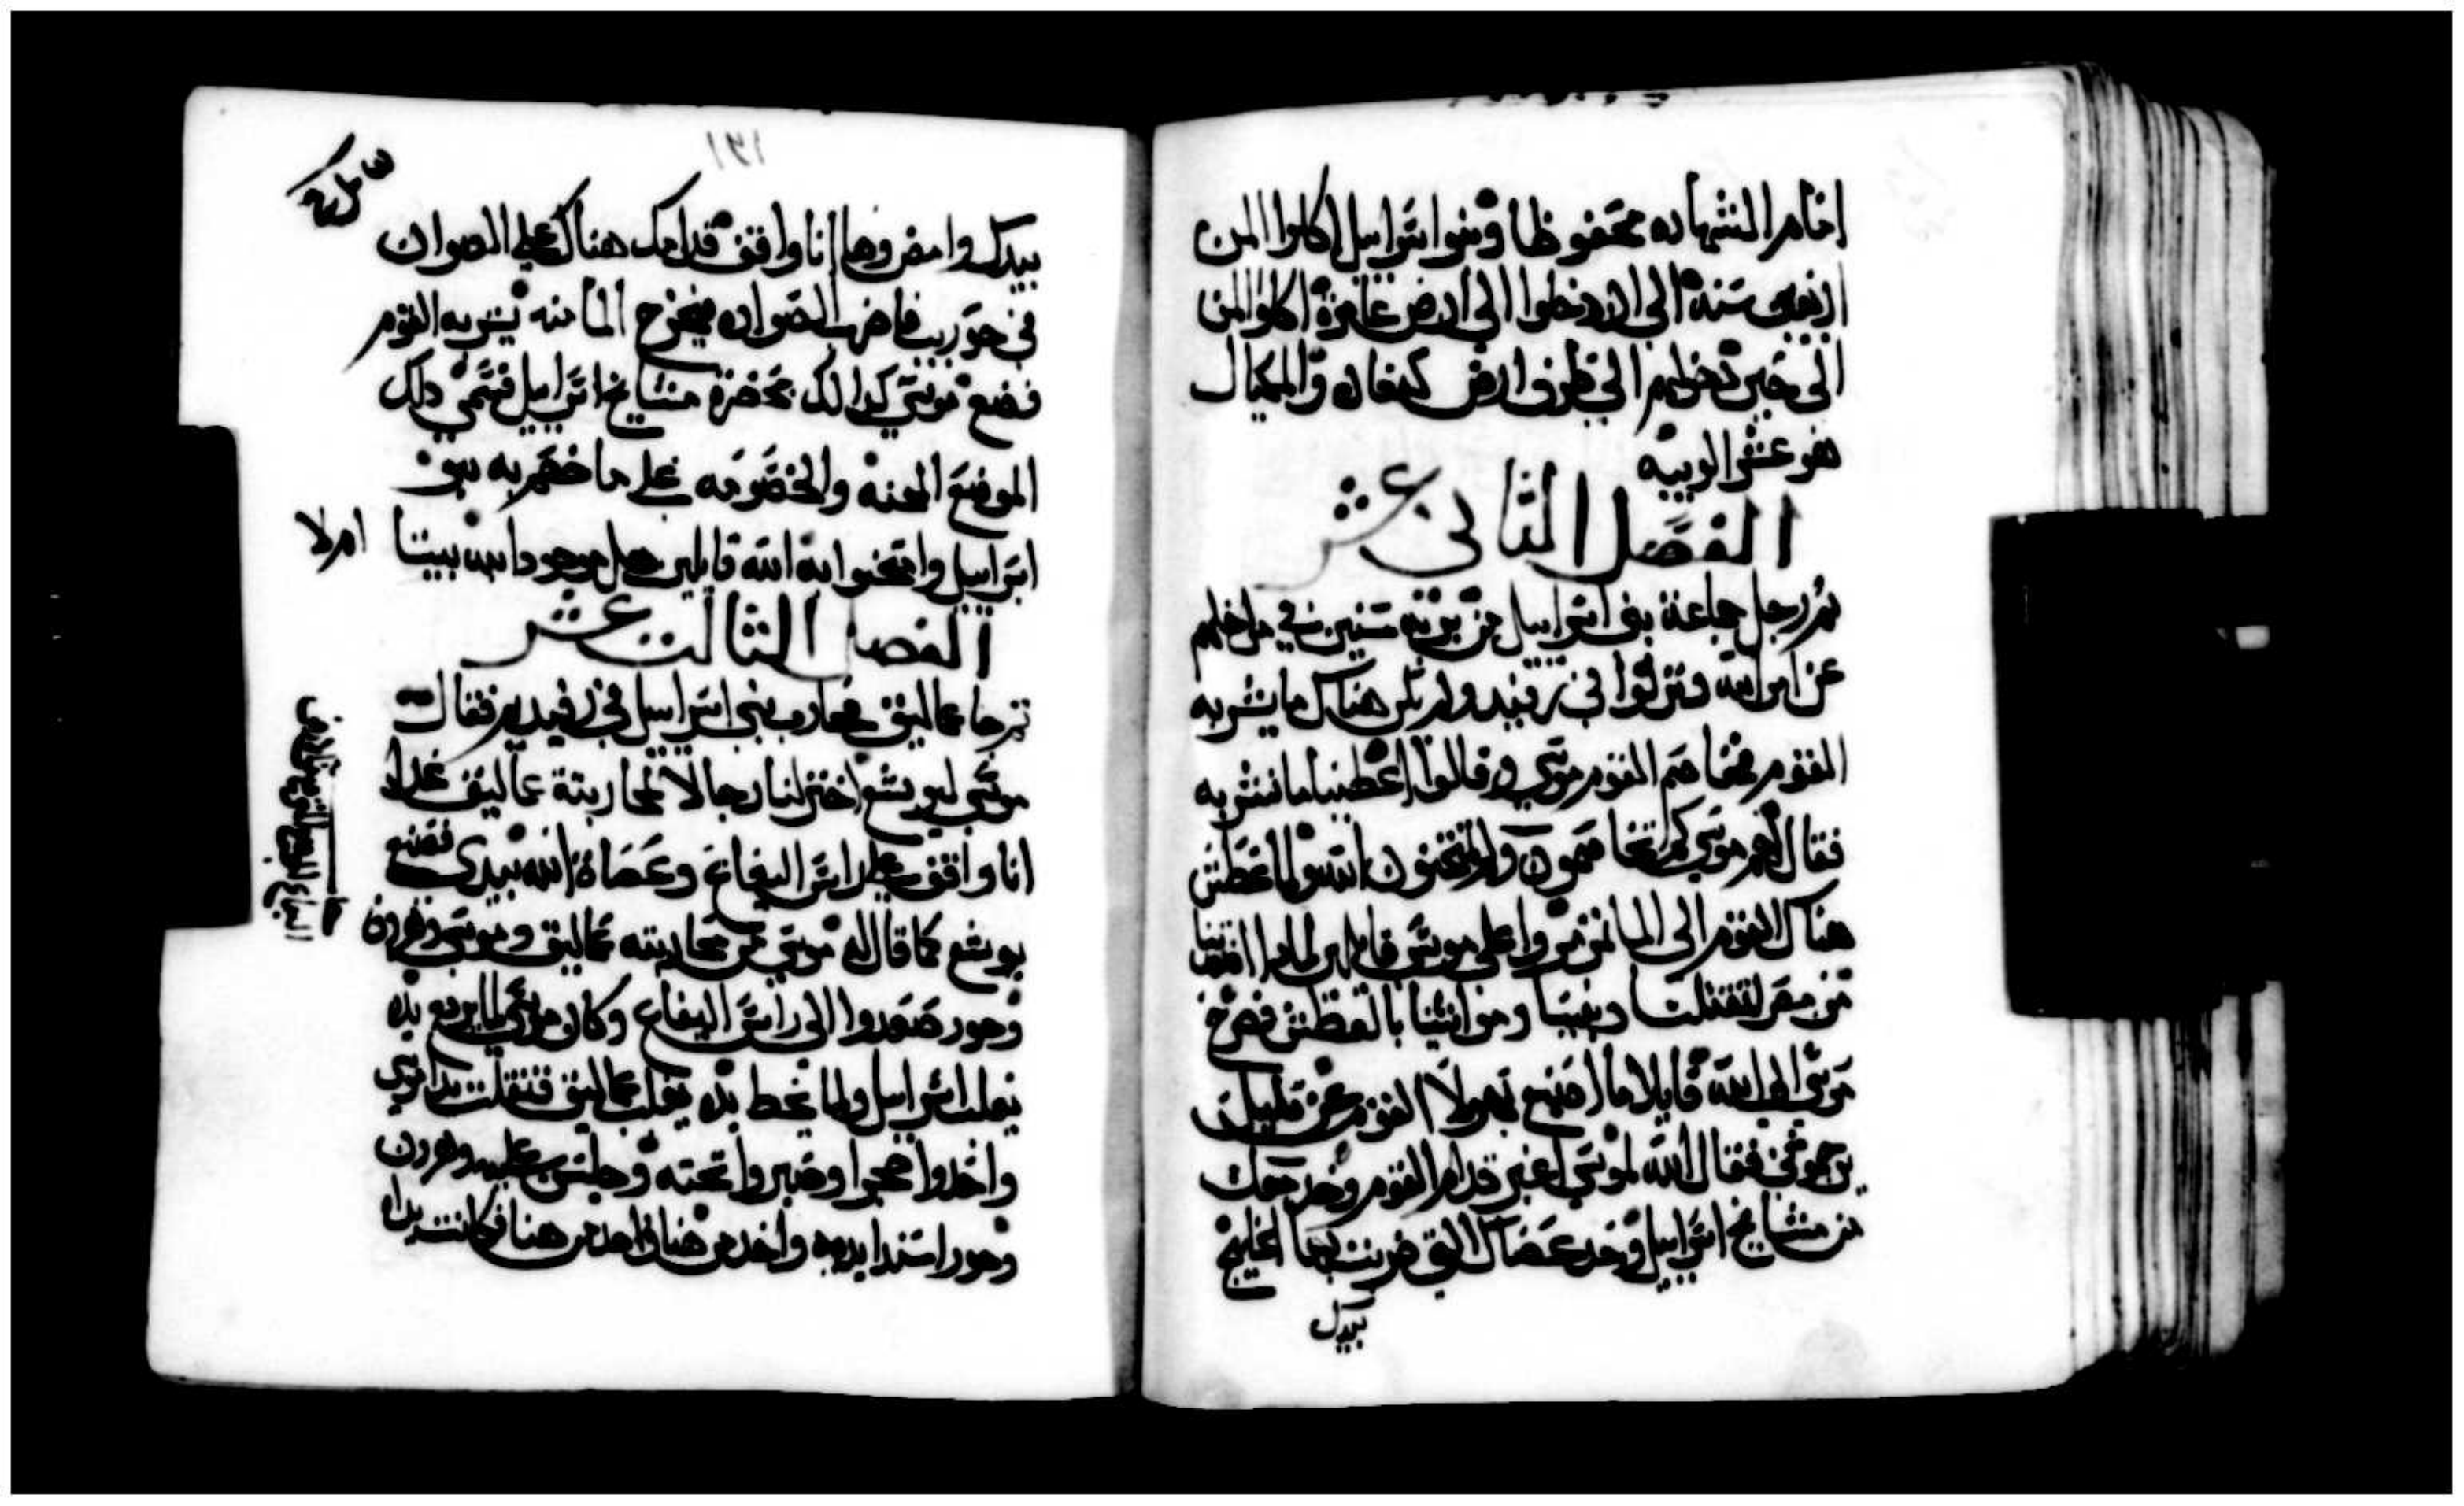 امام الشهاده محفوظا وبنوا اسراييل اكلوا المن
اربعين سنة الى ان دخلوا الى ارض عامرة اكلوا المن
الى حين دخولهم الى طرف ارض كنعان والمكيال
هو عشر الويبه
الفصل الثاني عشر
ثم رحل جماعة بنى اسراييل من برية سنين في مراحلهم
عن امر الله ونزلوا في رفيديم ولم يكن هناك ما يشربه
القوم فخاصم القوم موسى وقالوا اعطينا ما نشربه
فقال لهم موسى لم تخاصمون ولم تمتحنون الله ولما عطش
هناك القوم الى الما تذمروا على موسى قايلين لماذا اصعدتنا
من مصر لتقتلنا وبنينا ومواشينا بالعطش فصرخ
موسى الى الله قايلا ما اصنع بهولا القوم عن قليل
يرجموني فقال الله لموسى اعبر قدام القوم وخد معك
من مشايخ اسراييل وخد عصاك التي ضربت بها الخليج
بيدك
١٢١
بيدك وامض وها انا واقف قدامك هناك على الصوان
في حوريب فاضرب الصوان فيخرج الما منه يشربه القوم
فصنع موسى كذالك بحضرة مشايخ اسراييل فسمي دلك
الموضع المحنه والخصومه على ما خصم به بنو
اسراييل وامتحنوا به الله قايلين هل موجود الله بيننا ام لا
الفصل الثالث عشر
ثم جا عماليق فحارب بني اسراييل في رفيديم فقال
موسى ليوشع اختر لنا رجالا لمحاربة عماليق غدا
انا واقف على راس اليفاع وعصاة الله بيدي فصنع
يوشع كما قال له موسى من محاربته عماليق وموسى وهرون
وحور صعدوا الى راس اليفاع وكان موسى لما يرفع يده
يغلب اسراييل ولما يحط يده يغلب عماليق فثقلت يدا موسى
واخدوا حجرا وصيروا تحته وجلس عليه وهرون
وحور اسندا يديه واحد من هنا وواحد من هنا فكانت يداه